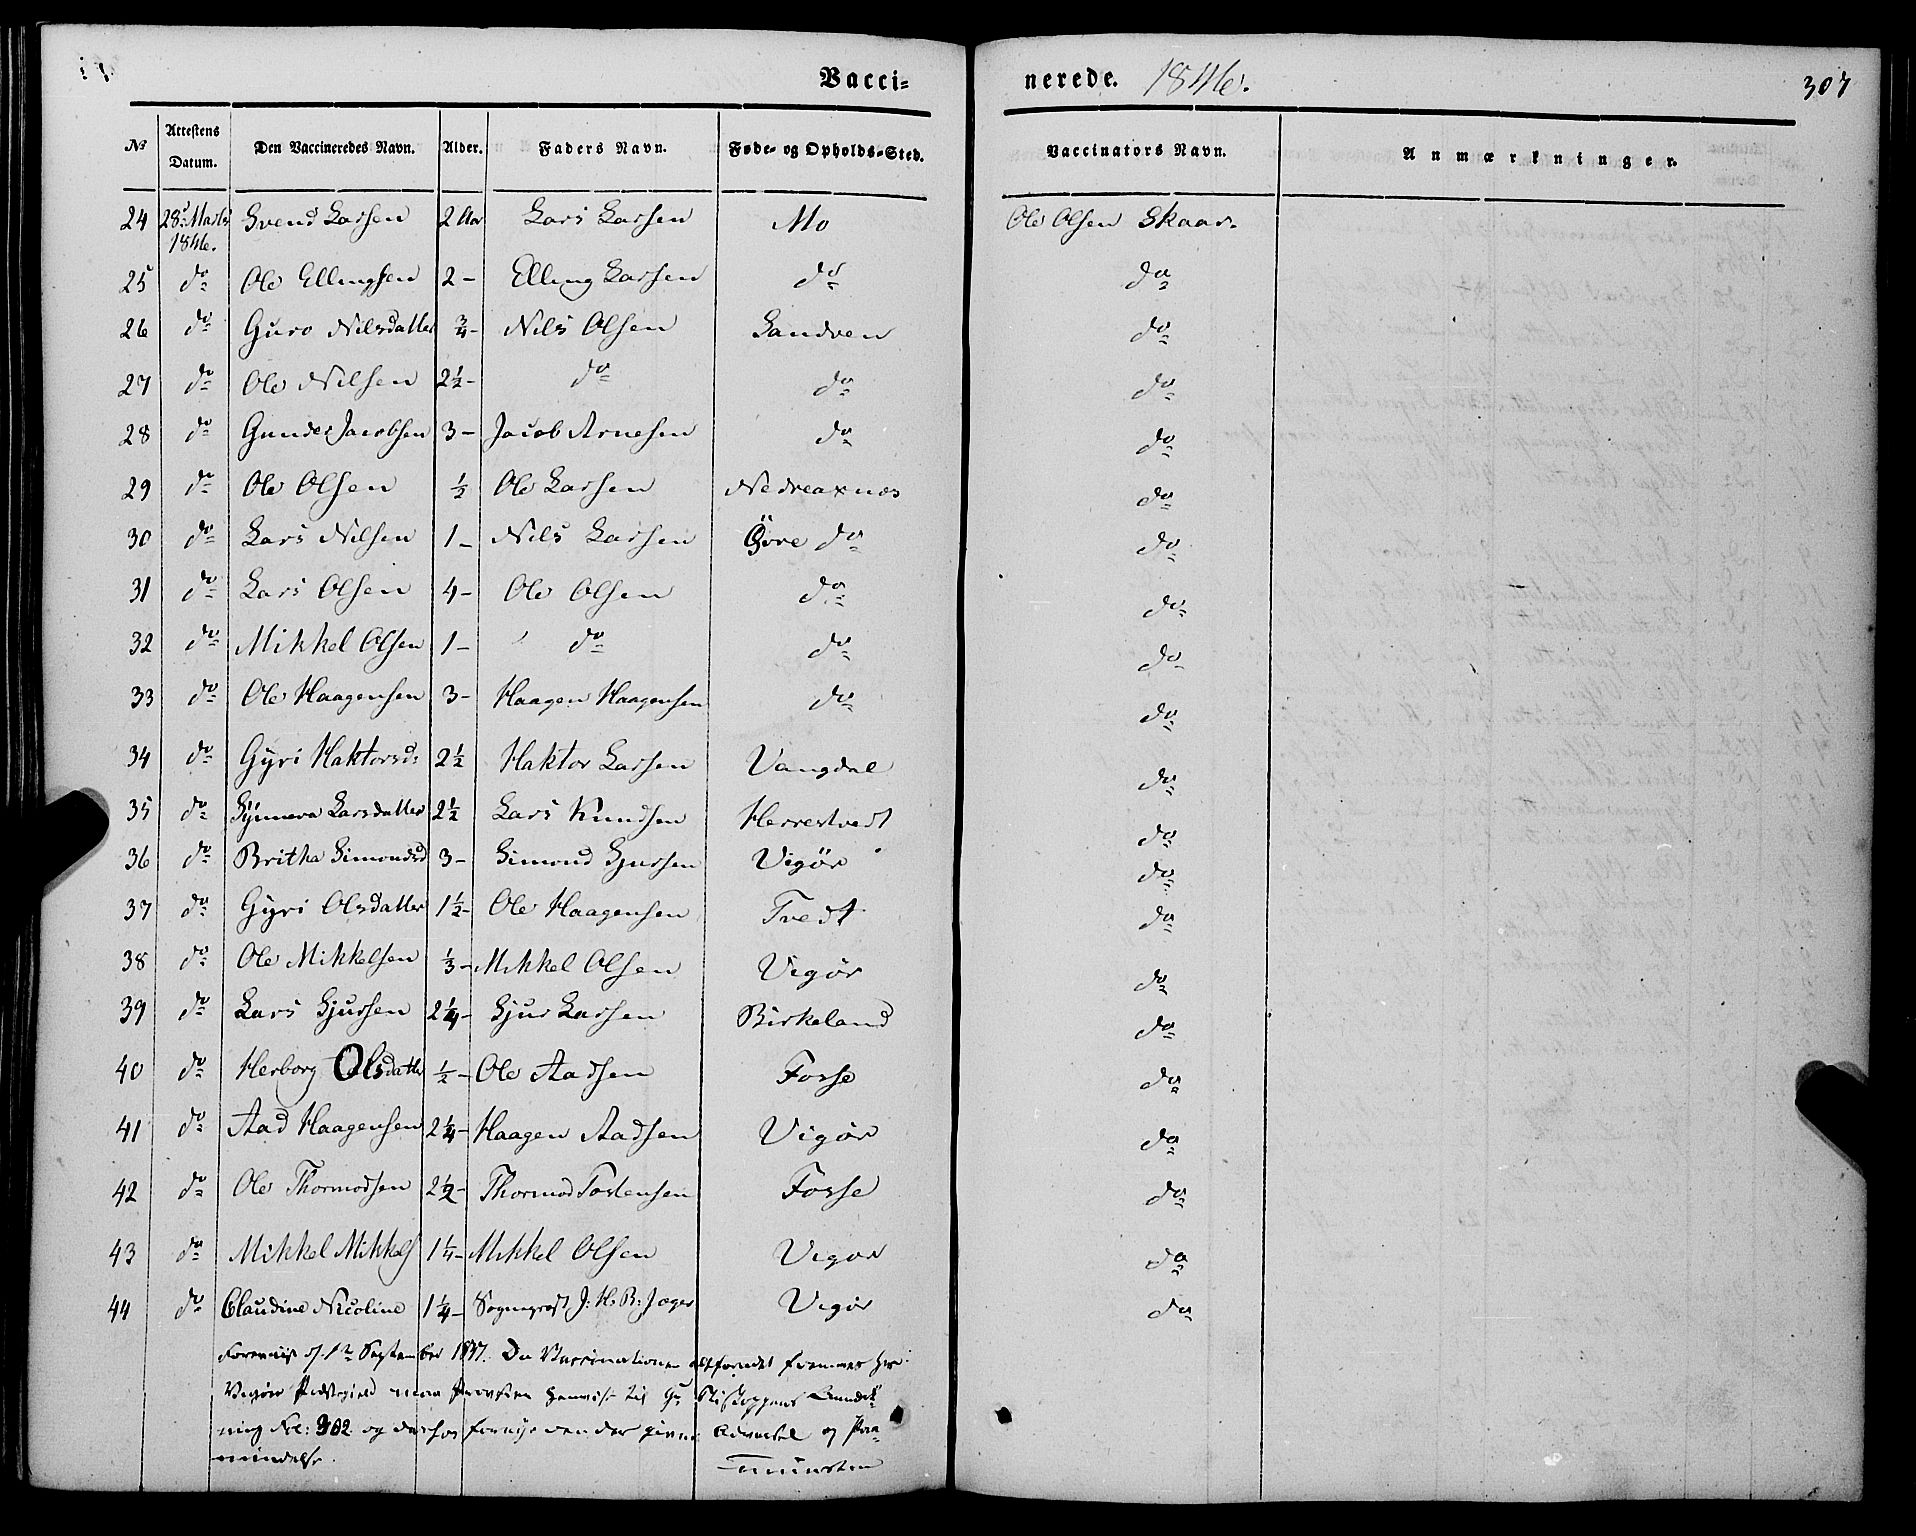 Vacci-
nerede. 1846.
307
No
Attestens Datum.
Den Vaccineredes Navn.
Alder.
Faders Navn.
Føde- og Opholds-Sted.
Vaccinators Navn.
Anmærkninger.
24 28: Marts 1846. Svend Larsen 2 Aar Lars Larsen Mo Ole Olsen Skaar.
25 do Ole Ellingsen 2 - Elling Larsen do do
26 do Guro Nilsdatter 3/4 - Nils Olsen Sandven do
27 do Ole Nilsen 2 1/2 - do do do
28 do Gunder Jacobsen 3 - Jacob Arnesen do do
29 do Ole Olsen 1/2 Ole Larsen Nedreaxnes do
30 do Lars Nilsen 1 - Nils Larsen Öore do do
31 do Lars Olsen 4 - Ole Olsen do do
32 do Mikkel Olsen 1 - do do do
33 do Ole Haagensen 3 - Haagen Haagensen do do
34 do Gyri Haktorsd: 2 1/2 Haktor Larsen Vangdal do
35 do Synneva Larsdatter 2 1/2 Lars Knudsen Herrestvedt do
36 do Britha Simondsd 3 - Simond Sjursen Vigör do
37 do Gyri Olsdatter 1 1/2 - Ole Haagensen Tvedt do
38 do Ole Mikkelsen 1/3 - Mikkel Olsen Vigör do
39 do Lars Sjursen 2 1/4 - Sjur Larsen Birkeland do
40 do Herborg Olsdatter 1/2 - Ole Aadsen Fosse do
41 do Aad Haagensen 2 1/4 - Haagen Aadsen Vigör do
42 do Ole Thormodsen 2 1/2 - Thormod Tostensen Fosse do
43 do Mikkel Mikkels 1 1/4 - Mikkel Olsen Vigør do
44 do Claudine Nicoline 1 1/4 - Sogneprest J: H. B: Jæger Vigör do
September Da Vaccinationen fremmes her
Vigörs Præstegield maa Provsten henvise til
Fol: 302. og forny den der givne og Paa-
mindelse.